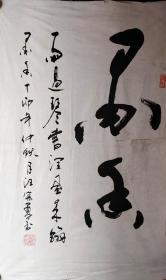 墨香
雨過琴書潤風来翰
墨香丁卯年仲秋月汪書